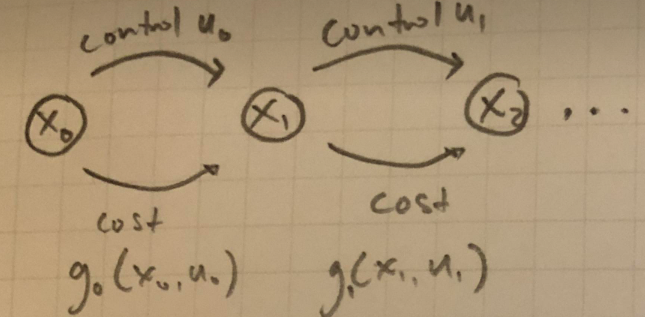 control u₀ control u₁
x₀ x₁ x₂ ...
cost cost
g₀(x₀, u₀) g₁(x₁, u₁)